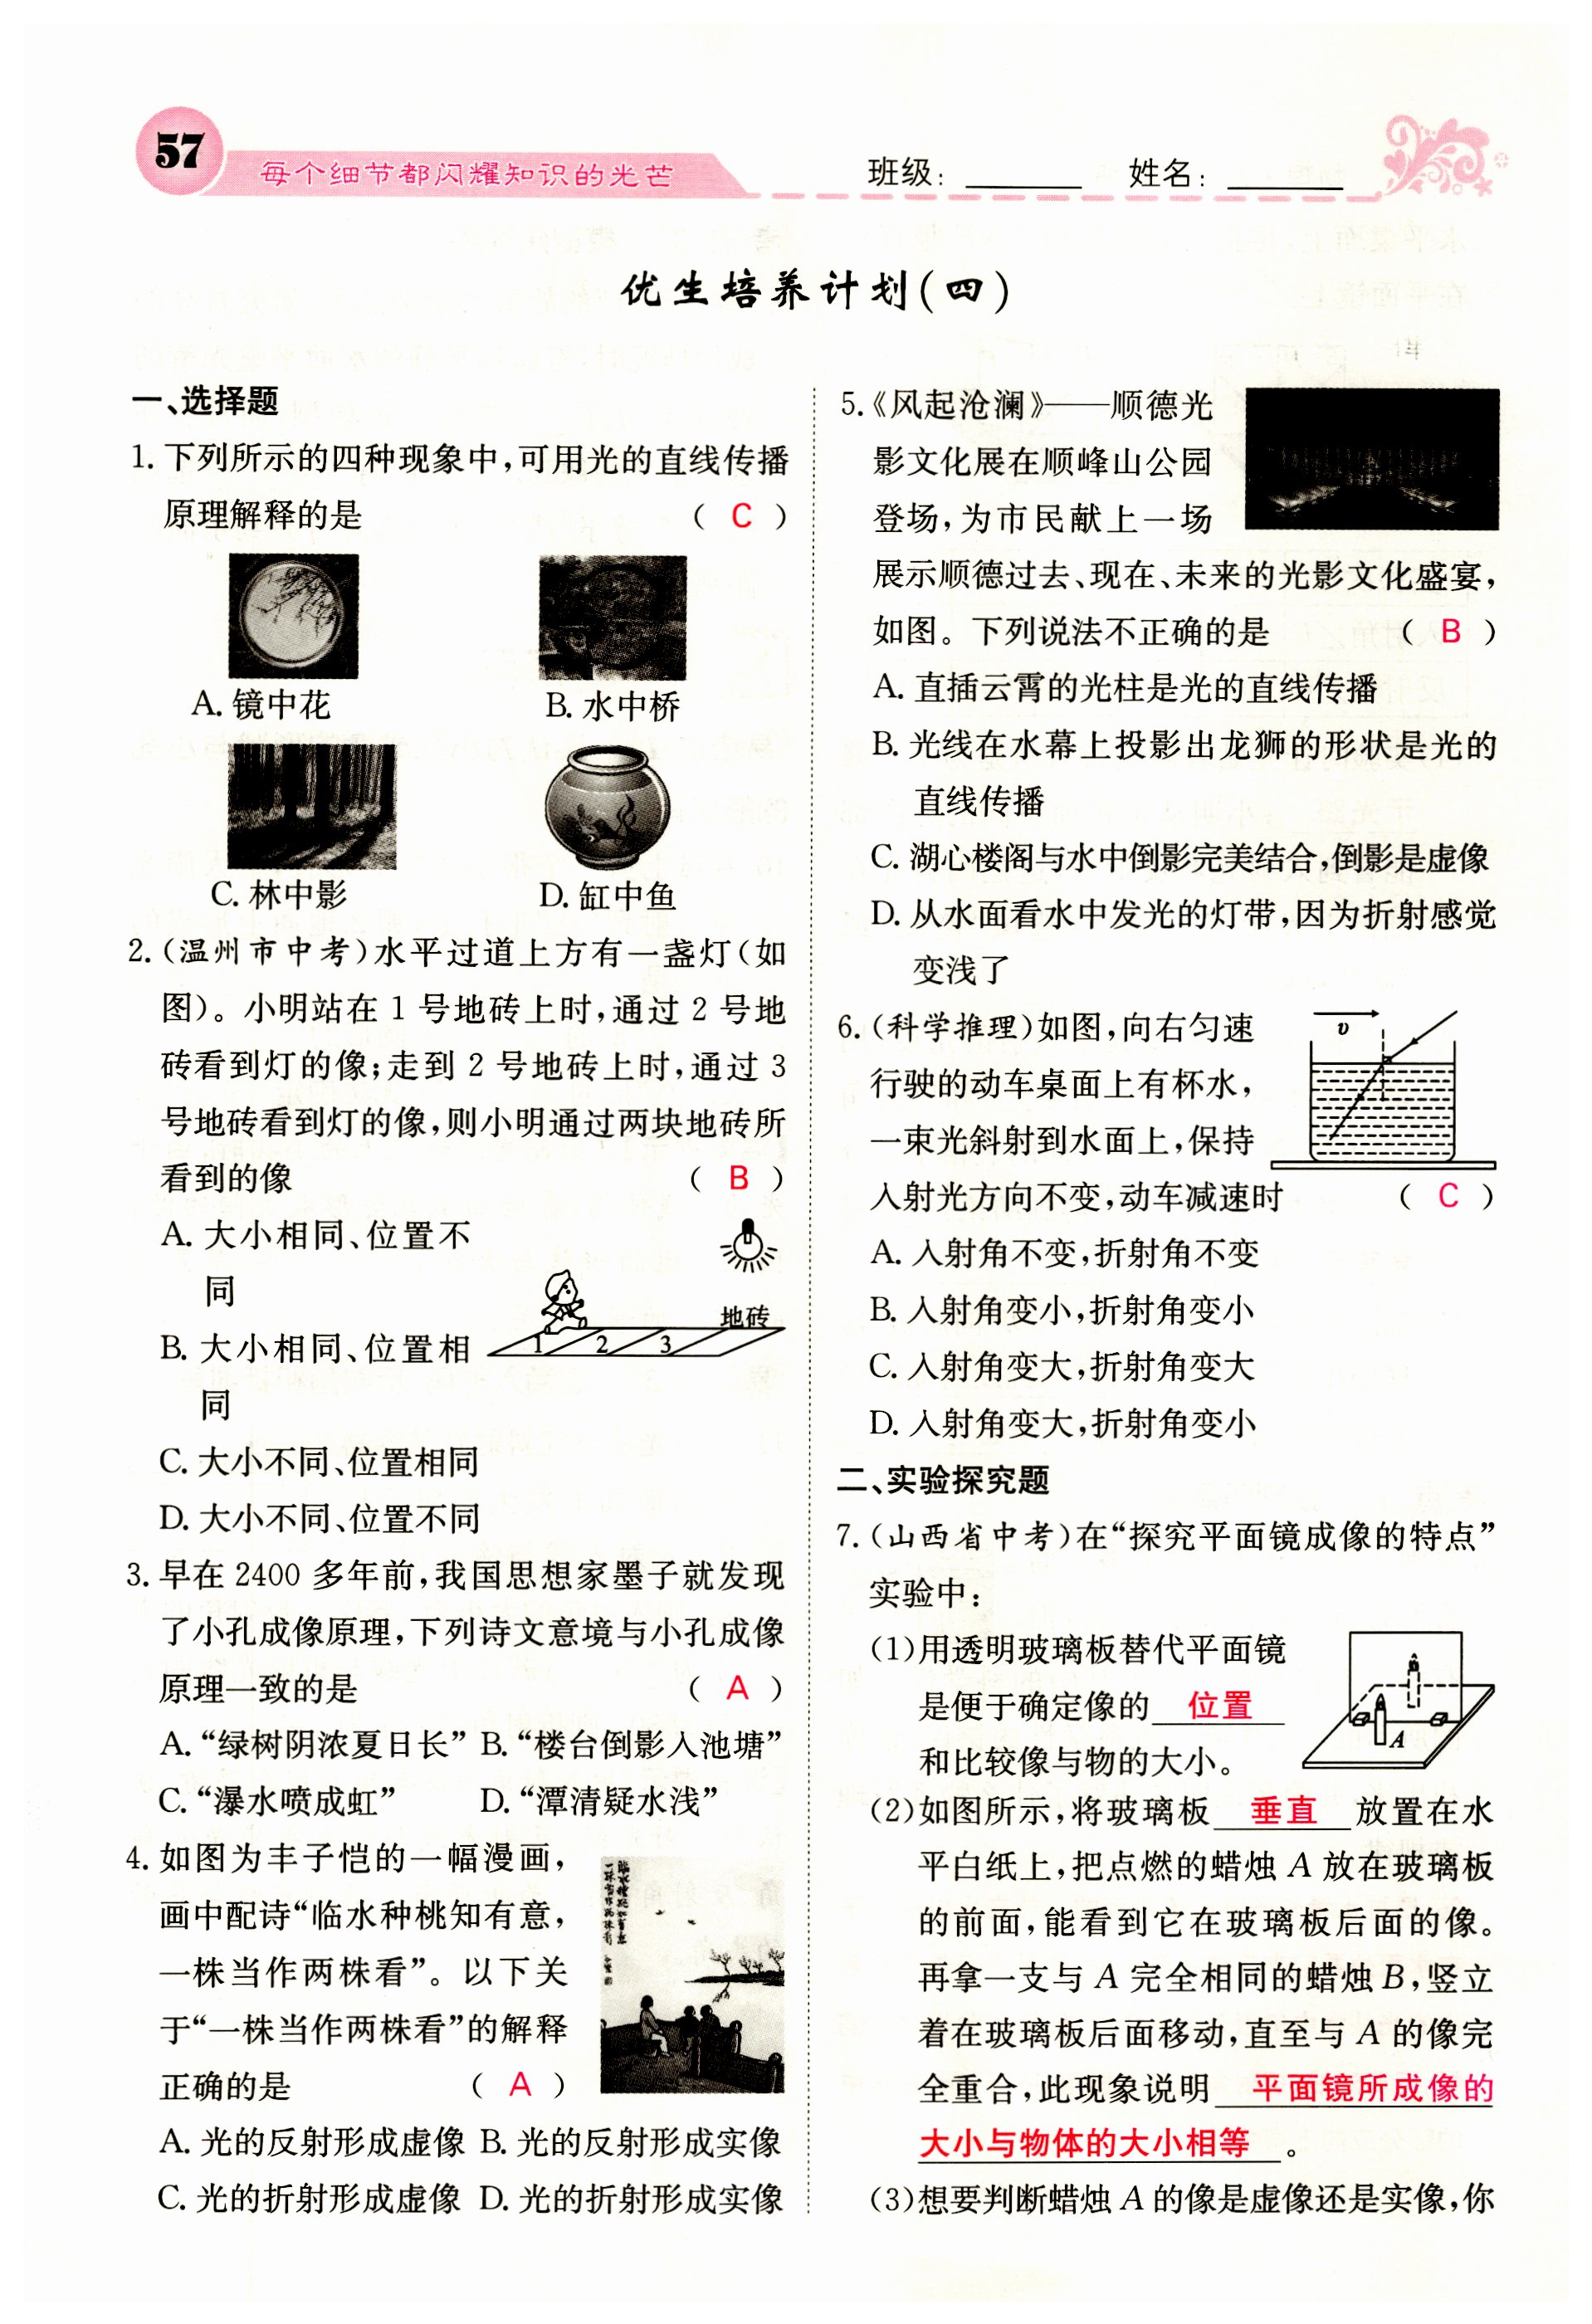 57
每个细节都闪耀知识的光芒
班级：______ 姓名：______
优生培养计划(四)
一、选择题
1. 下列所示的四种现象中，可用光的直线传播
原理解释的是 （ C ）
A. 镜中花 B. 水中桥
C. 林中影 D. 缸中鱼
2. (温州市中考)水平过道上方有一盏灯(如
图)。小明站在 1 号地砖上时，通过 2 号地
砖看到灯的像；走到 2 号地砖上时，通过 3
号地砖看到灯的像，则小明通过两块地砖所
看到的像 （ B ）
A. 大小相同、位置不
同
B. 大小相同、位置相
同
地砖
1 2 3
C. 大小不同、位置相同
D. 大小不同、位置不同
3. 早在 2400 多年前，我国思想家墨子就发现
了小孔成像原理，下列诗文意境与小孔成像
原理一致的是 （ A ）
A. “绿树阴浓夏日长” B. “楼台倒影入池塘”
C. “瀑水喷成虹” D. “潭清疑水浅”
4. 如图为丰子恺的一幅漫画，
画中配诗“临水种桃知有意，
一株当作两株看”。以下关
于“一株当作两株看”的解释
正确的是 （ A ）
A. 光的反射形成虚像 B. 光的反射形成实像
C. 光的折射形成虚像 D. 光的折射形成实像
5. 《风起沧澜》——顺德光
影文化展在顺峰山公园
登场，为市民献上一场
展示顺德过去、现在、未来的光影文化盛宴，
如图。下列说法不正确的是 （ B ）
A. 直插云霄的光柱是光的直线传播
B. 光线在水幕上投影出龙狮的形状是光的
直线传播
C. 湖心楼阁与水中倒影完美结合，倒影是虚像
D. 从水面看水中发光的灯带，因为折射感觉
变浅了
6. (科学推理)如图，向右匀速
行驶的动车桌面上有杯水，
一束光斜射到水面上，保持
入射光方向不变，动车减速时 （ C ）
v
A. 入射角不变，折射角不变
B. 入射角变小，折射角变小
C. 入射角变大，折射角变大
D. 入射角变大，折射角变小
二、实验探究题
7. (山西省中考)在“探究平面镜成像的特点”
实验中：
(1)用透明玻璃板替代平面镜
是便于确定像的 位置
和比较像与物的大小。
A
(2)如图所示，将玻璃板 垂直 放置在水
平白纸上，把点燃的蜡烛 A 放在玻璃板
的前面，能看到它在玻璃板后面的像。
再拿一支与 A 完全相同的蜡烛 B，竖立
着在玻璃板后面移动，直至与 A 的像完
全重合，此现象说明 平面镜所成像的
大小与物体的大小相等 。
(3)想要判断蜡烛 A 的像是虚像还是实像，你